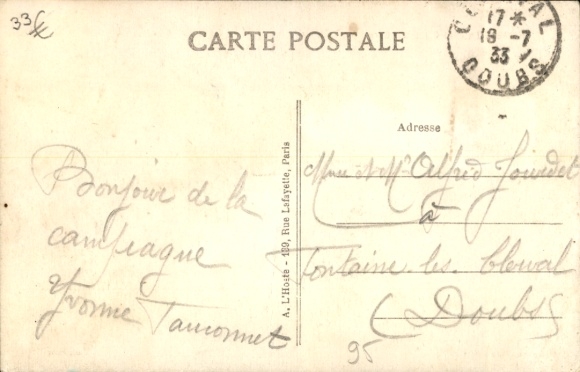 33
CARTE POSTALE
17 *
18 -7
33
DOUBS
Adresse
Mme et Mr Alfred Jourdet
à
Fontaine-les-Clerval
(Doubs)
Bonjour de la
campagne
Yvonne
A. L'Hoste - 139, Rue Lafayette, Paris
95